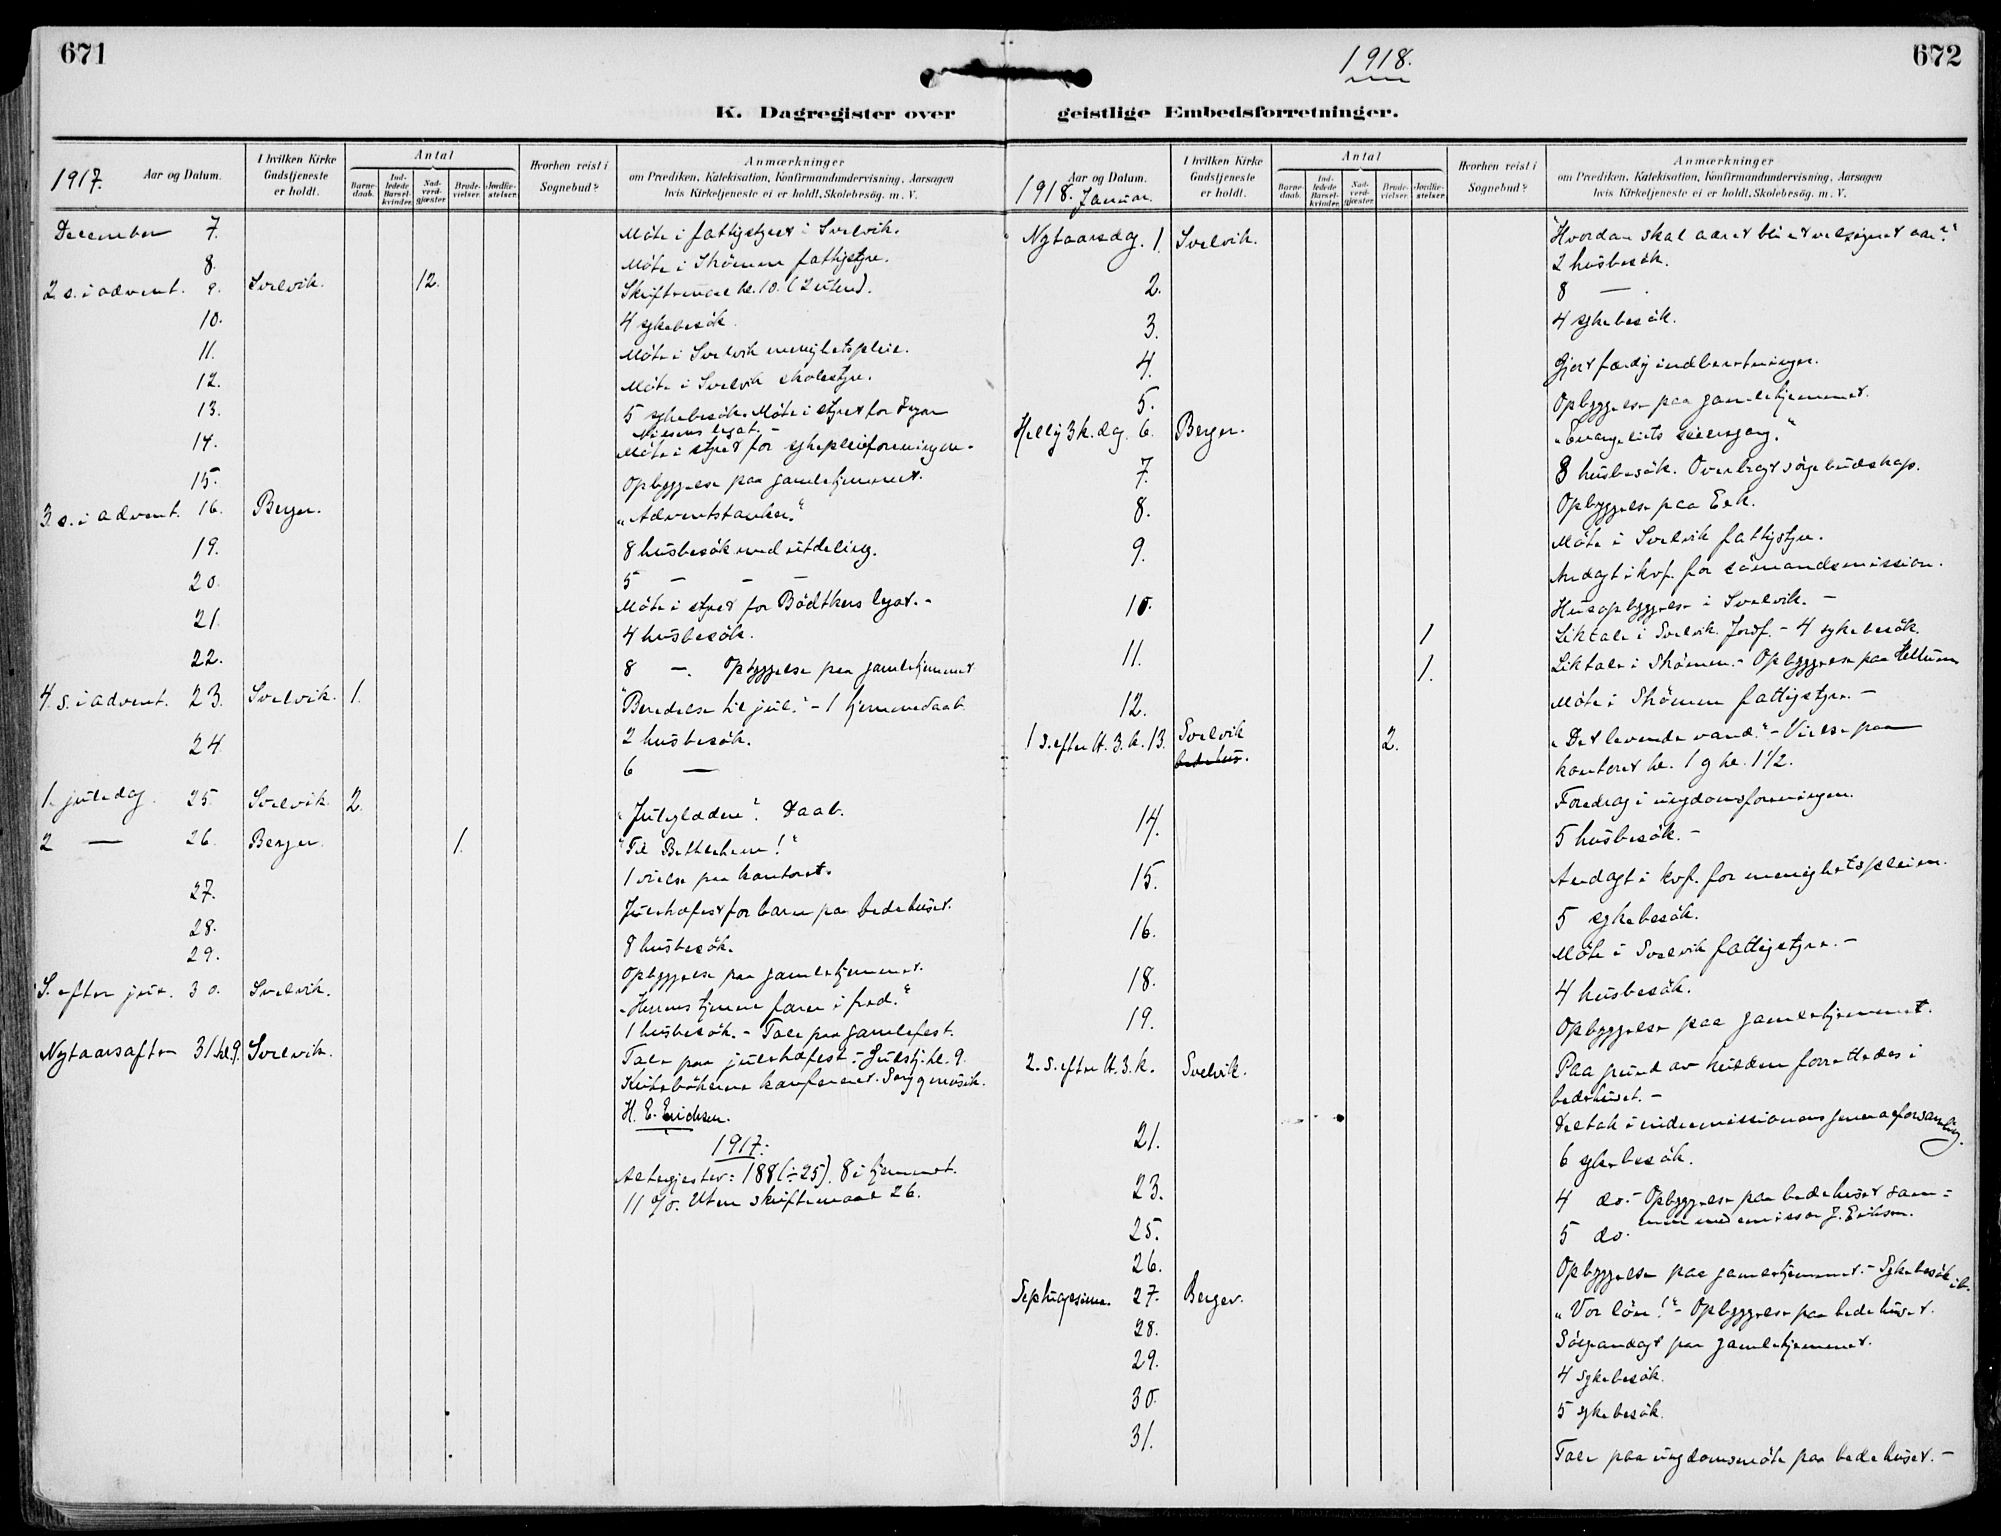 671
K. Dagregister over
1917.
Aar og Datum.
I hvilken Kirke Gudstjeneste er holdt.
Antal
Barne-daab.
Ind-ledede Barsel-kvinder.
Nad-verd-gjæster.
Brude-vielser.
Jordfæ-stelser.
Hvorhen reist i Sognebud?
Anmærkninger
om Prædiken, Katekisation, Konfirmandundervisning, Aarsagen
hvis Kirketjeneste ei er holdt, Skolebesøg. m. V.
December 7. Möte i fattigstyret i Svelvik.
8. Möte i Strömm fattigstyre.
2. s. i advent. 9. Svelvik. 12. Skriftemaal kl. 10. (2 uten).
10. 4 sykebesök.
11. Möte i Svelvik menighetspleie.
12. Möte i Svelvik skolestyre.
13. 5 sykebesök. Möte i styret for
Nielsens legat. -
14. Möte i styret for sykepleieforeningen.
15. Opbyggelse paa gamlehjemmet.
3. s. i advent. 16. Berger. „Adventstanker."
19. 8 husbesök med utdeling.
20. 5 — — —
Möte i styret for Bödtkers legat. -
21. 4 husbesök.
22. 8 — . Opbyggelse paa gamlehjemmet
4. s. i advent. 23. Svelvik. 1. "Beredelse til jul." - 1 hjemmedaab.
24. 2 husbesök.
6 —
1. juledag. 25. Svelvik. 2. "Juleglæden". Daab.
2 — 26. Berger. 1. "Til Bethlehem!"
1 vielse paa kontoret.
27. Juletræfest for barn paa bedehuset.
28. 8 husbesök.
29. Opbyggelse paa gamlehjemmet.
S. efter jul. 30. Svelvik. „Herrens tjener farer i fred."
1 husbesök. - Tale paa gamlefest.
Nytaarsaften 31. kl. 9. Svelvik. Tale paa juletræfest. - Gudstj. kl. 9.
Kirkebökerne konfereret.
H. E. Erichsen.
1917.
Altergjester: 188 (÷25). 8 i hjemmet.
11 %. Uten skriftemaal 26.
672
1918.
geistlige Embedsforretninger.
Aar og Datum.
1918. Januar.
I hvilken Kirke Gudstjeneste er holdt.
Antal
Barne-daab.
Ind-ledede Barsel-kvinder.
Nad-verd-gjæster.
Brude-vielser.
Jordfæ-stelser.
Hvorhen reist i Sognebud?
Anmærkninger
om Prædiken, Katekisation, Konfirmandundervisning, Aarsagen
hvis Kirketjeneste ei er holdt, Skolebesøg. m. V.
Nytaarsdag. 1. Svelvik. "Hvordan skal aaret bli et velsignet aar?"
2 husbesök.
2. 8 — .
3. 4 sykebesök.
4. Gjort færdig indberetninger.
5. Opbyggelse paa gamlehjemmet.
Hellig 3 k. dag. 6. Berger. „Evangeliets seiersgang."
7. 8 husbesök. Overbragt sörgebudskap.
8. Opbyggelse paa Eek.
Möte i Svelvik fattigstyre.
9. Andagt i kvf. for sömandsmission.
10. Husopbyggelse i Svelvik. -
1 Liktale i Svelvik. Jordf. - 4 sykebesök.
11. 1. Liktale i Strömm. - Opbyggelse paa Hellum
12. Möte i Strömm fattigstyre. -
1 s. efter H. 3. k. 13. Svelvik 2. „Det levende vand." - Vielse paa
bedehus. kontoret kl. 1 og kl. 1½.
Foredrag i ungdomsforeningen.
14. 5 husbesök. -
15. Andagt i kvf. for menighetspleien.
5 sykebesök.
16. Möte i Svelvik fattigstyre. -
18. 4 husbesök.
19. Opbyggelse paa gamlehjemmet.
2. s. efter H. 3. k. Svelvik. Paa grund av kulden forrettedes i
bedehuset. -
Deltok i indremissionens generalforsamling.
21. 6 sykebesök.
23. 4 do. - Opbyggelse paa bedehuset sam=
men med emissær J. Eriksen.
25. 5 do.
26. Opbyggelse paa gamlehjemmet. - Sykebesök ib.
Septuagesima. 27. Berger. „Vor lön!" - Opbyggelse paa bedehuset.
28. Sörgeandagt paa gamlehjemmet.
29. 4 sykebesök.
30. 5 sykebesök.
31. Tale paa ungdomsmöte paa bedehuset. -